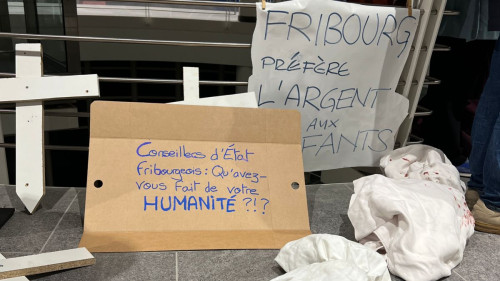 FRIBOURG
PRÉFÈRE
L'ARGENT
AUX
FANTS
Conseillers d'État
fribourgeois: Qu'avez-
vous fait de votre
HUMANITÉ ?!?